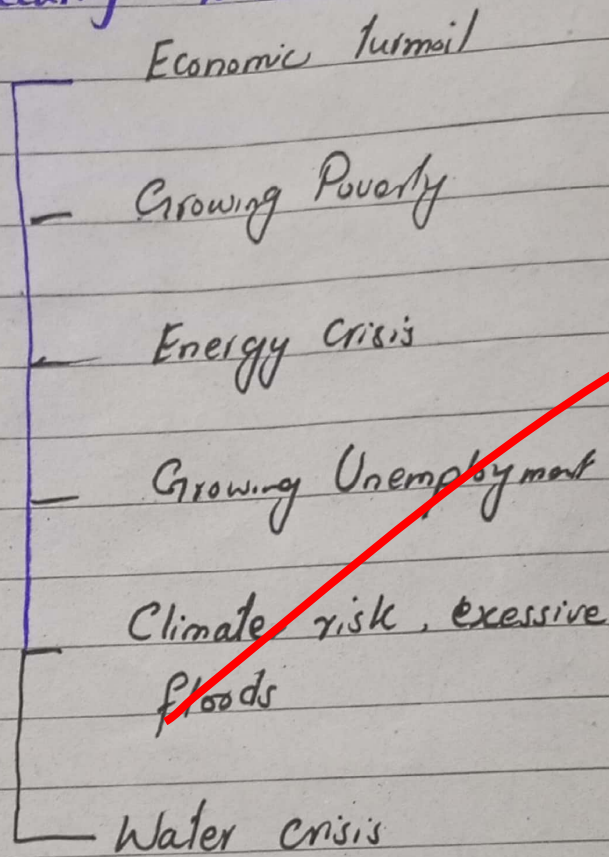 Economic turmoil
Growing Poverty
Energy Crisis
Growing Unemployment
Climate risk, excessive
floods
Water crisis